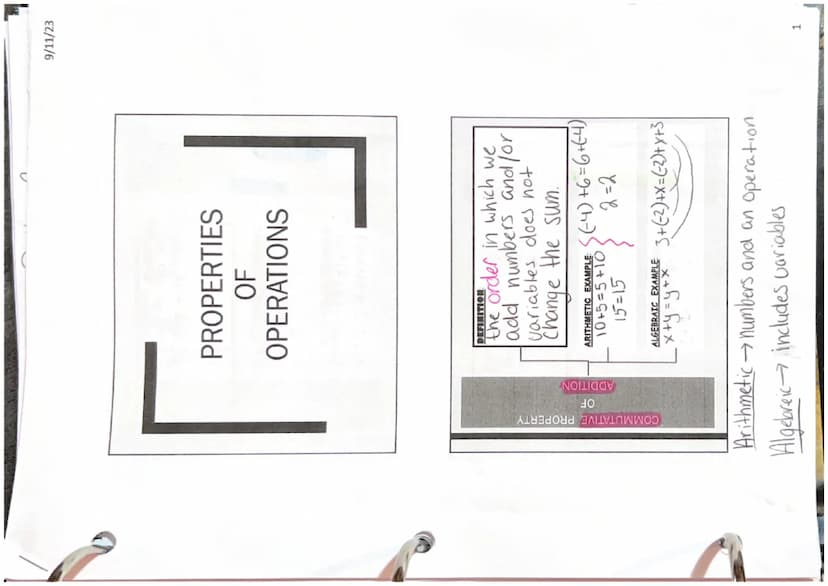 9/11/23
PROPERTIES
OF
OPERATIONS
COMMUTATIVE PROPERTY
OF
ADDITION
DEFINITION
the order in which we
add numbers and/or
variables does not
change the sum.
ARITHMETIC EXAMPLE
10+5=5+10
15=15
(-4)+6=6+(-4)
2=2
ALGEBRAIC EXAMPLE
x+y=y+x
3+(-2)+x=(-2)+x+3
Arithmetic → numbers and an operation
Algebreic → includes variables
1